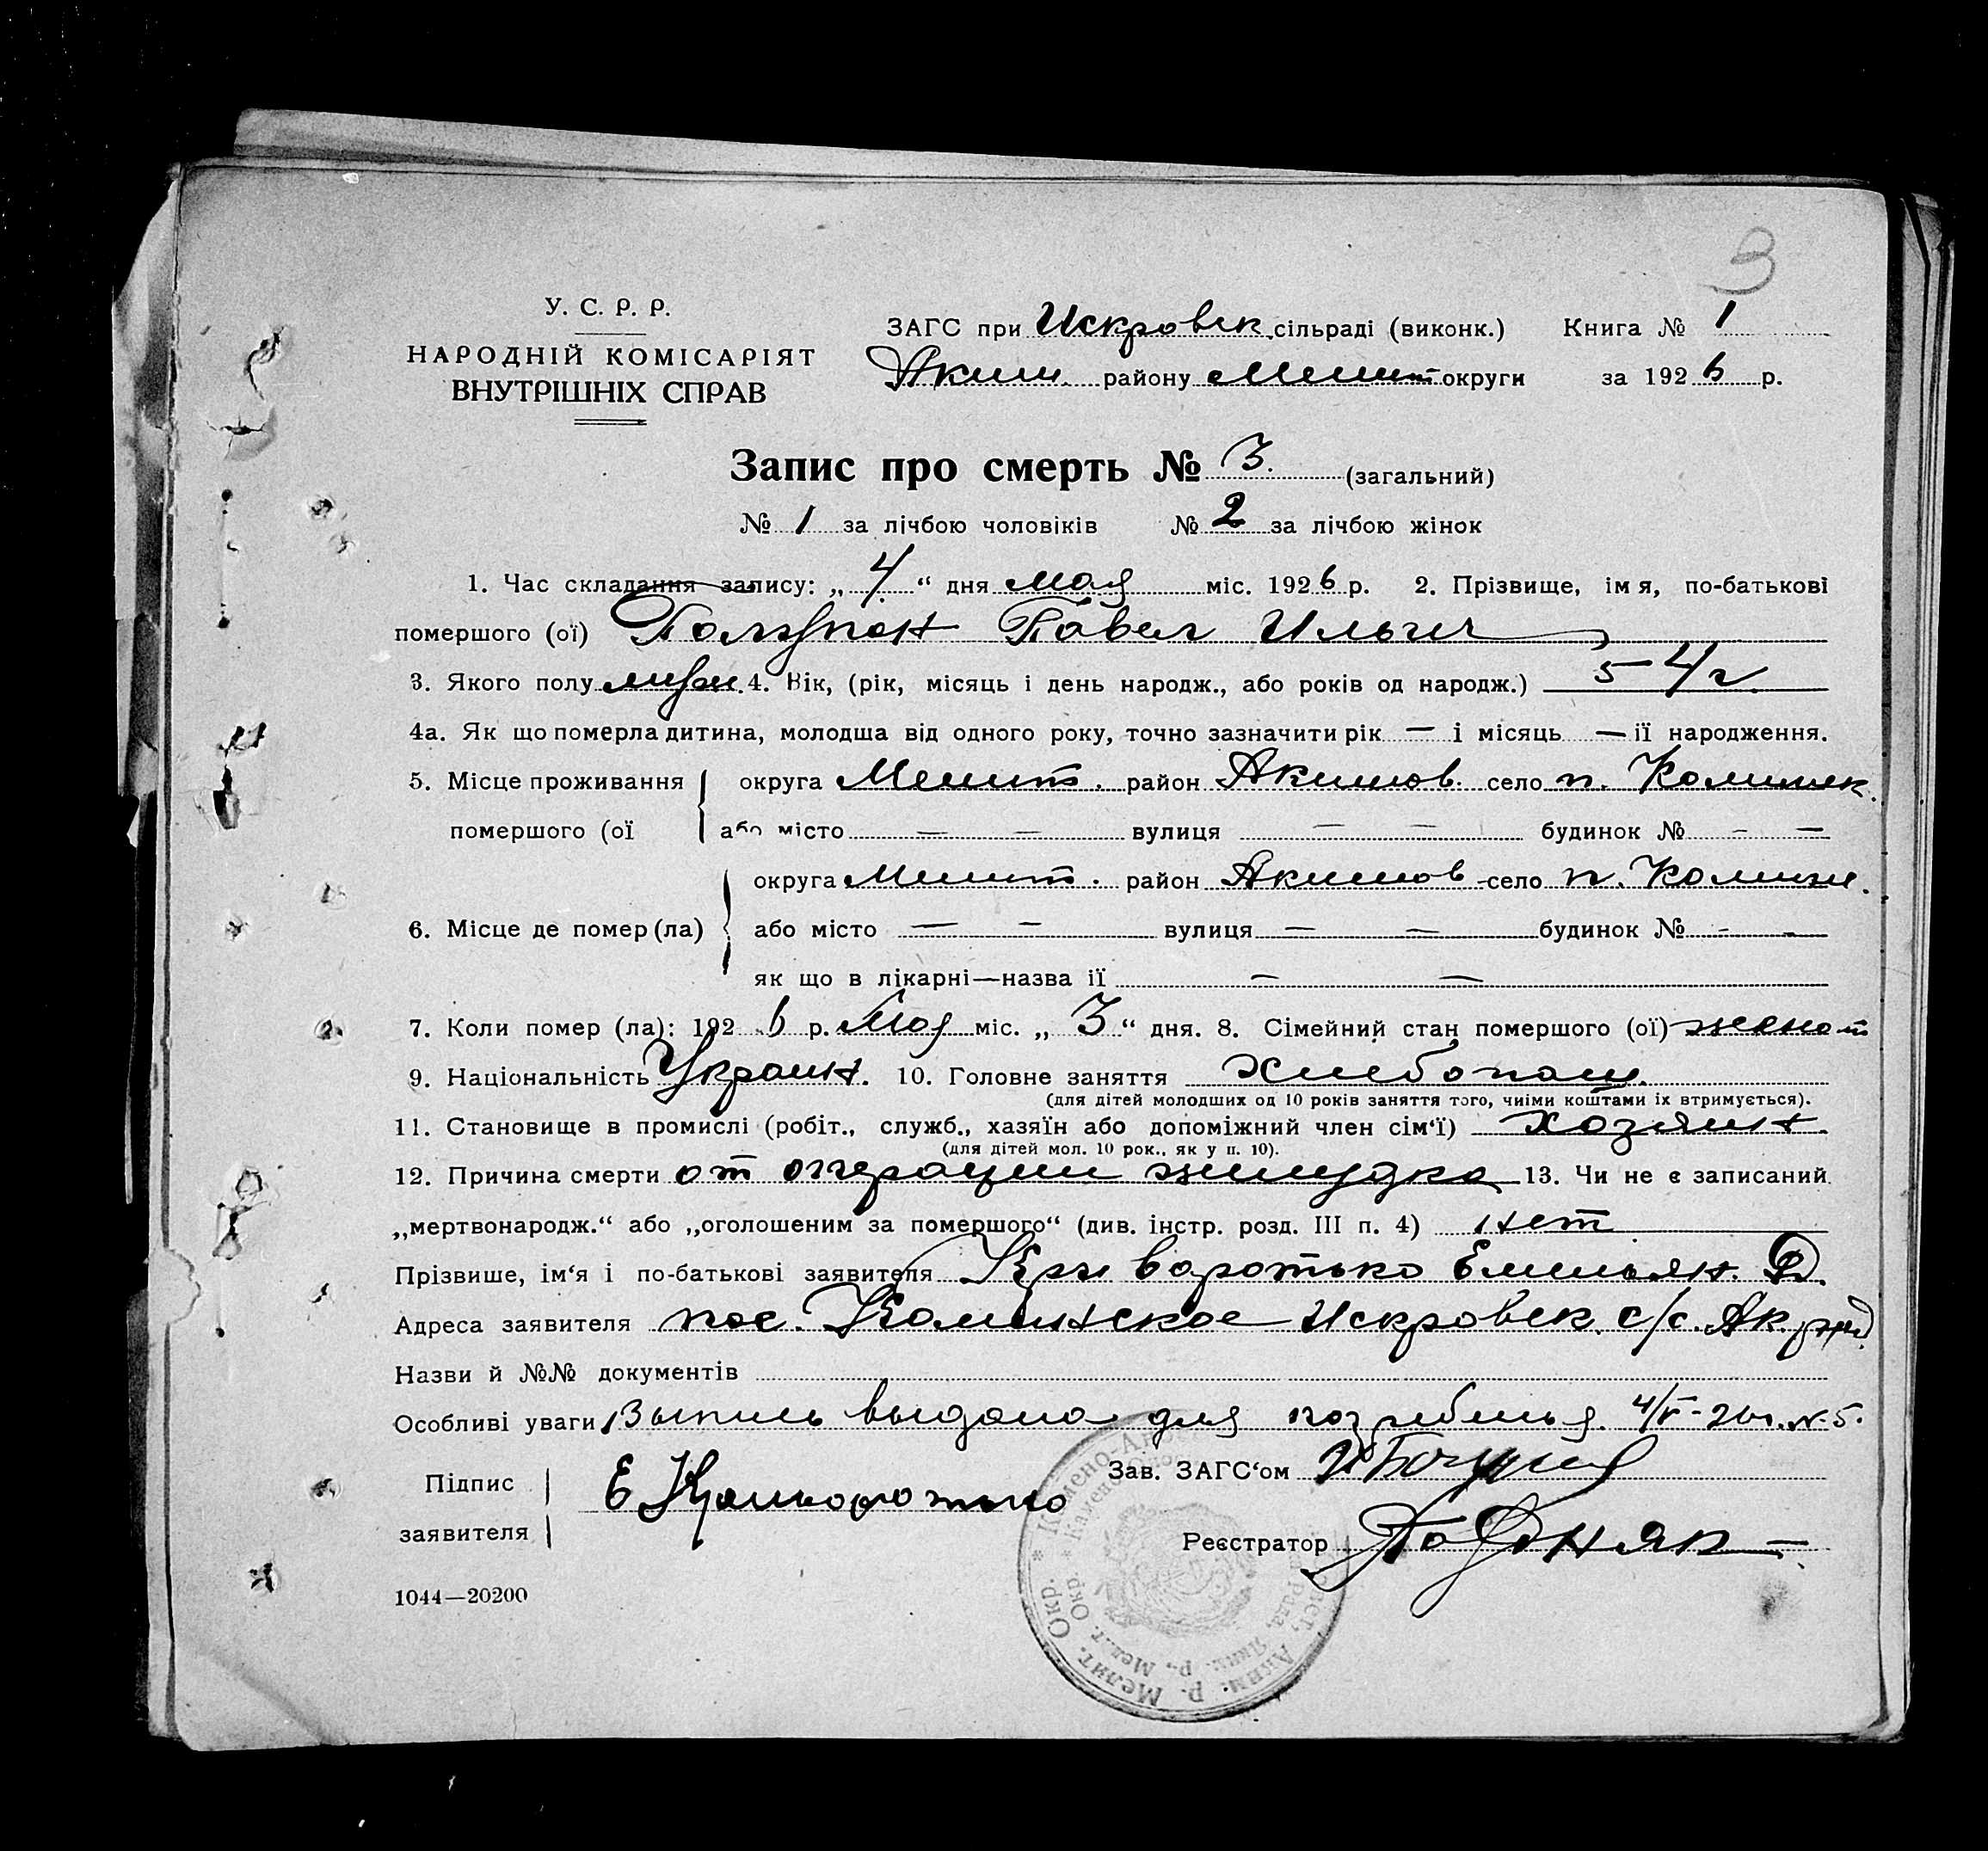 3
У. С. Р. Р.
НАРОДНІЙ КОМІСАРІЯТ
ВНУТРІШНІХ СПРАВ
ЗАГС при Искровск. сільраді (виконк.) Книга № 1
Аким. району Мелит округи за 1926 р.
Запис про смерть № 3. (загальний)
№ 1 за лічбою чоловіків № 2 за лічбою жінок
1. Час складання запису: „4“ дня мая міс. 1926 р. 2. Прізвище, імя, по-батькові
помершого (ої) Павел Ильич
3. Якого полу муж. 4. Вік, (рік, місяць і день народж., або років од народж.) 54 г.
4а. Як що померла дитина, молодша від одного року, точно зазначити рік — і місяць — її народження.
5. Місце проживання округа Мелит. район Акимов. село п. Коминск.
помершого (ої або місто — — вулиця — — будинок № — —
округа Мелит. район Акимов село п. Комин.
6. Місце де помер (ла) або місто — — вулиця — — будинок № - -
як що в лікарні—назва її — —
7. Коли помер (ла): 1926 р. Мая міс. „3“ дня. 8. Сімейний стан помершого (ої) женат
9. Національність Украин. 10. Головне заняття Хлебопаш.
(для дітей молодших од 10 років заняття того, чиїми коштами їх втримується).
11. Становище в промислі (робіт., служб., хазяїн або допоміжний член сім'ї) хозяин.
(для дітей мол. 10 рок., як у п. 10).
12. Причина смерти от операции желудка 13. Чи не є записаний
„мертвонародж.“ або „оголошеним за помершого“ (див. інстр. розд. III п. 4) нет
Прізвише, ім'я і по-батькові заявителя Криворотько Емельян. Ф.
Адреса заявителя пос. Коминское Искровск. с/с. Ак.
Назви й №№ документів
Особливі уваги Выпись выдана для погребенья. 4/V-26г. №5.
Підпис
заявителя Е Криворотько
Зав. ЗАГС'ом
Реєстратор
1044—20200